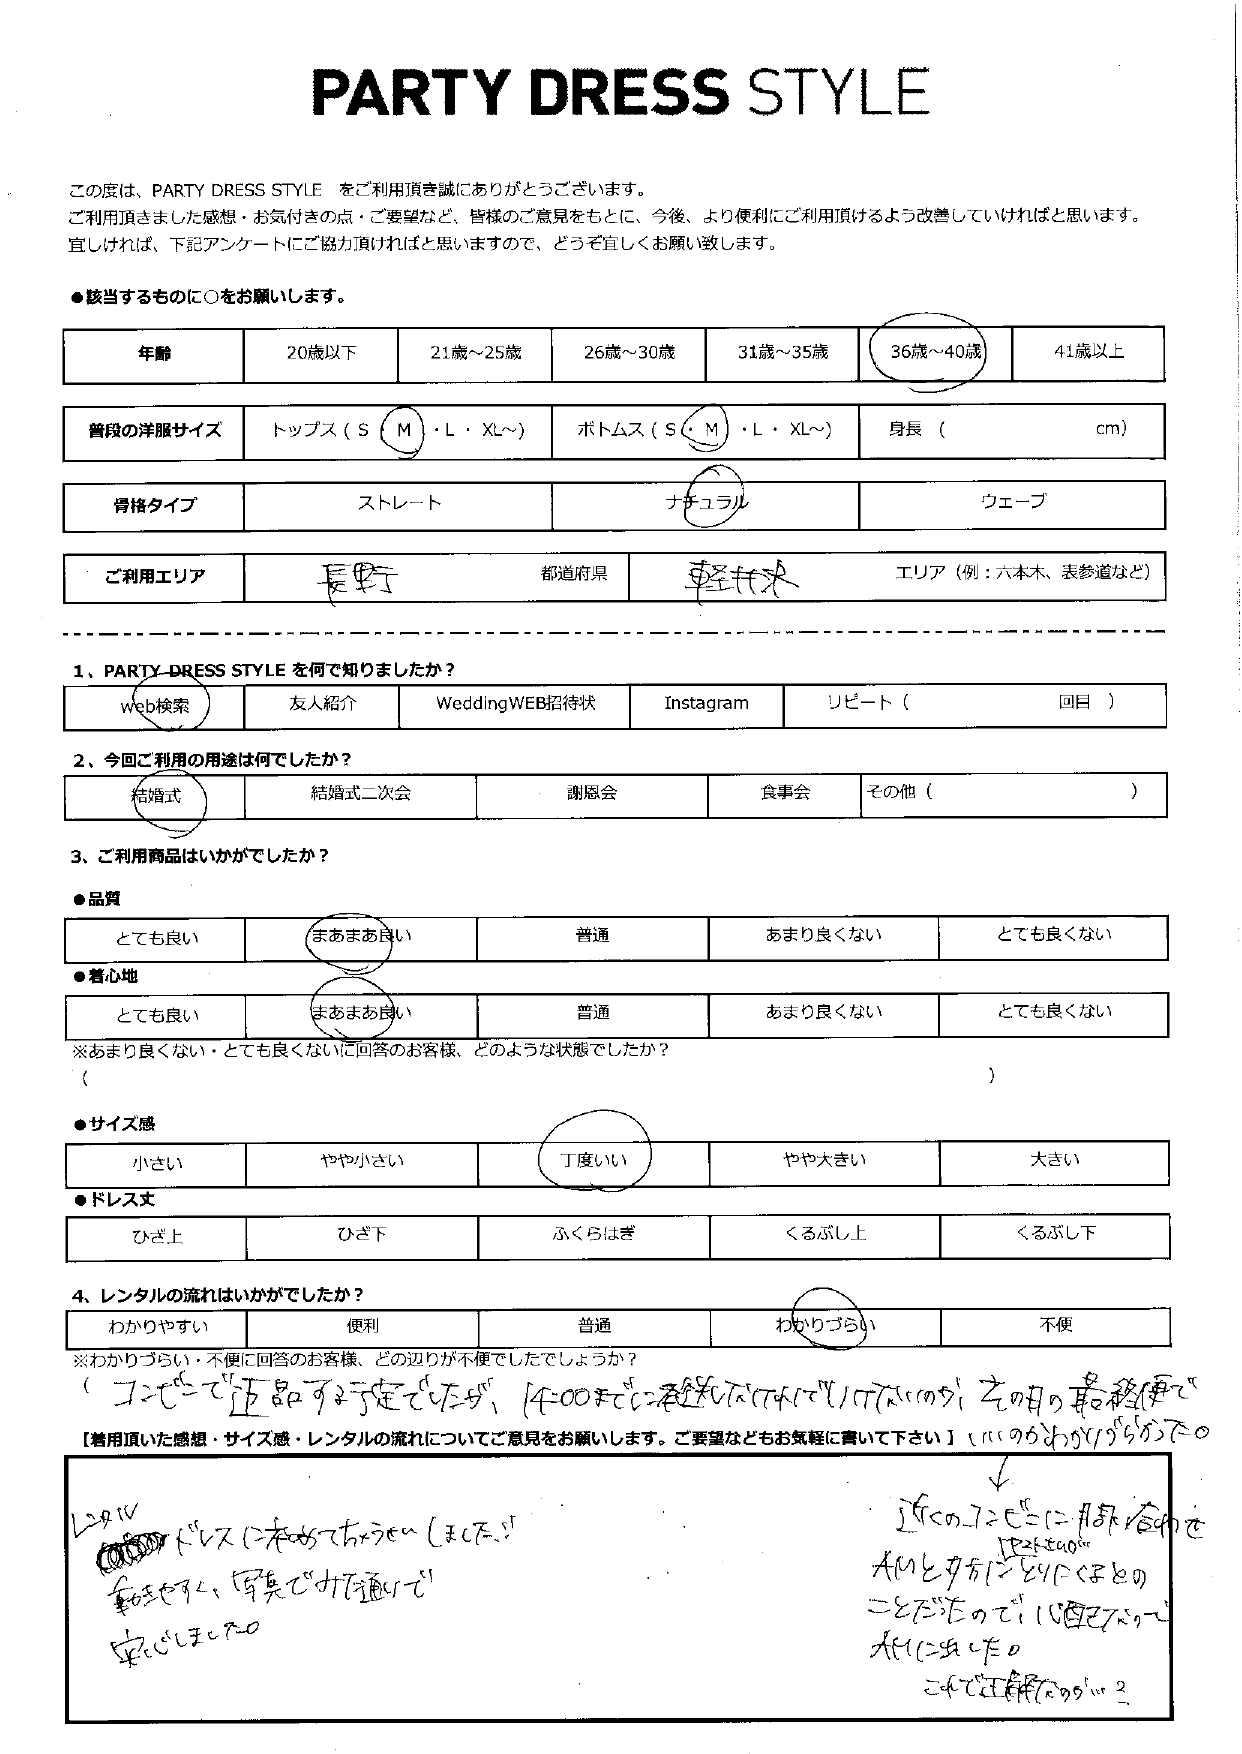 PARTY DRESS STYLE
この度は、PARTY DRESS STYLE をご利用頂き誠にありがとうございます。
ご利用頂きました感想・お気付きの点・ご要望など、皆様のご意見をもとに、今後、より便利にご利用頂けるよう改善していければと思います。
宜しければ、下記アンケートにご協力頂ければと思いますので、どうぞ宜しくお願い致します。
●該当するものに○をお願いします。
年齢 20歳以下 21歳～25歳 26歳～30歳 31歳～35歳 36歳～40歳 41歳以上
普段の洋服サイズ トップス ( S ・ M ・ L ・ XL～) ボトムス ( S ・ M ・ L ・ XL～) 身長 ( cm)
骨格タイプ ストレート ナチュラル ウェーブ
ご利用エリア 長野 都道府県 軽井沢 エリア（例：六本木、表参道など）
1、PARTY DRESS STYLE を何で知りましたか？
web検索 友人紹介 WeddingWEB招待状 Instagram リピート（ 回目 ）
2、今回ご利用の用途は何でしたか？
結婚式 結婚式二次会 謝恩会 食事会 その他（ ）
3、ご利用商品はいかがでしたか？
●品質
とても良い まあまあ良い 普通 あまり良くない とても良くない
●着心地
とても良い まあまあ良い 普通 あまり良くない とても良くない
※あまり良くない・とても良くないに回答のお客様、どのような状態でしたか？
（ ）
●サイズ感
小さい やや小さい 丁度いい やや大きい 大きい
●ドレス丈
ひざ上 ひざ下 ふくらはぎ くるぶし上 くるぶし下
4、レンタルの流れはいかがでしたか？
わかりやすい 便利 普通 わかりづらい 不便
※わかりづらい・不便に回答のお客様、どの辺りが不便でしたでしょうか？
（ コンビニで返品する予定でしたが、14:00までに発送しなければいけないのか、その日の最終便で
いいのかわかりづらかった。
【着用頂いた感想・サイズ感・レンタルの流れについてご意見をお願いします。ご要望などもお気軽に書いて下さい 】
レンタル
ドレスに初めてちょうせんしました!!
動きやすく、写真でみた通りで
安心しました。
↓
近くのコンビニに問い合わせ
AMと夕方にとりにくるとの
ことだったので、心配なので
AMに出した。
これで正解なのか…?